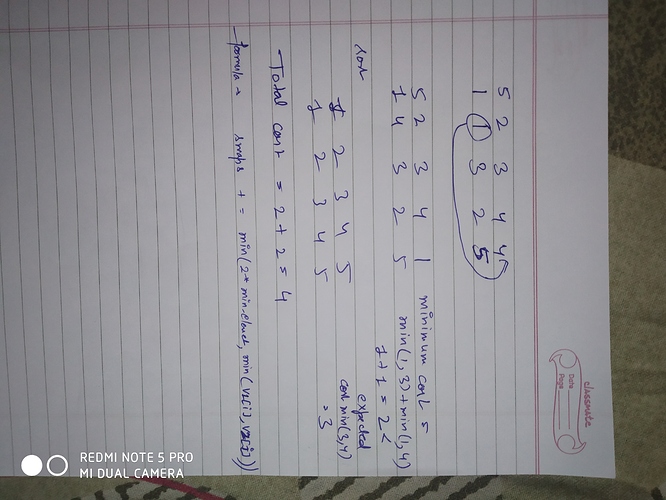 classmate
Date
Page
5 2 3 4 4
1 1 3 2 5
5 2 3 4 1 minimum cost =
1 4 3 2 5 min(1,3)+min(1,4)
1+1=2<
expected
1 2 3 4 5 cost min(3,4)
1 2 3 4 5 = 3
Total cost = 2+2=4
formula → swaps + = min(2*min-element, min(
REDMI NOTE 5 PRO
MI DUAL CAMERA